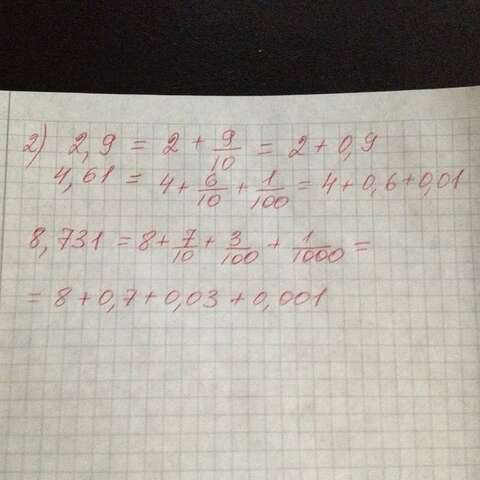 2) 2,9 = 2 + 9/10 = 2 + 0,9
4,61 = 4 + 6/10 + 1/100 = 4 + 0,6 + 0,01
8,731 = 8 + 7/10 + 3/100 + 1/1000 =
= 8 + 0,7 + 0,03 + 0,001